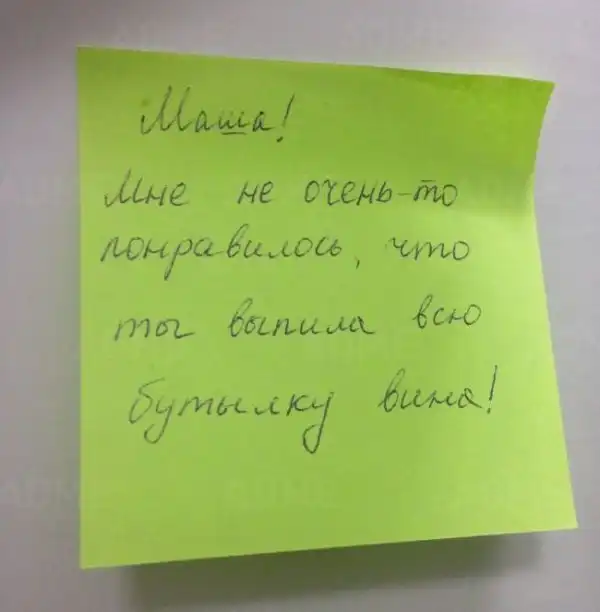 Маша!
Мне не очень-то
понравилось, что
ты выпила всю
бутылку вина!